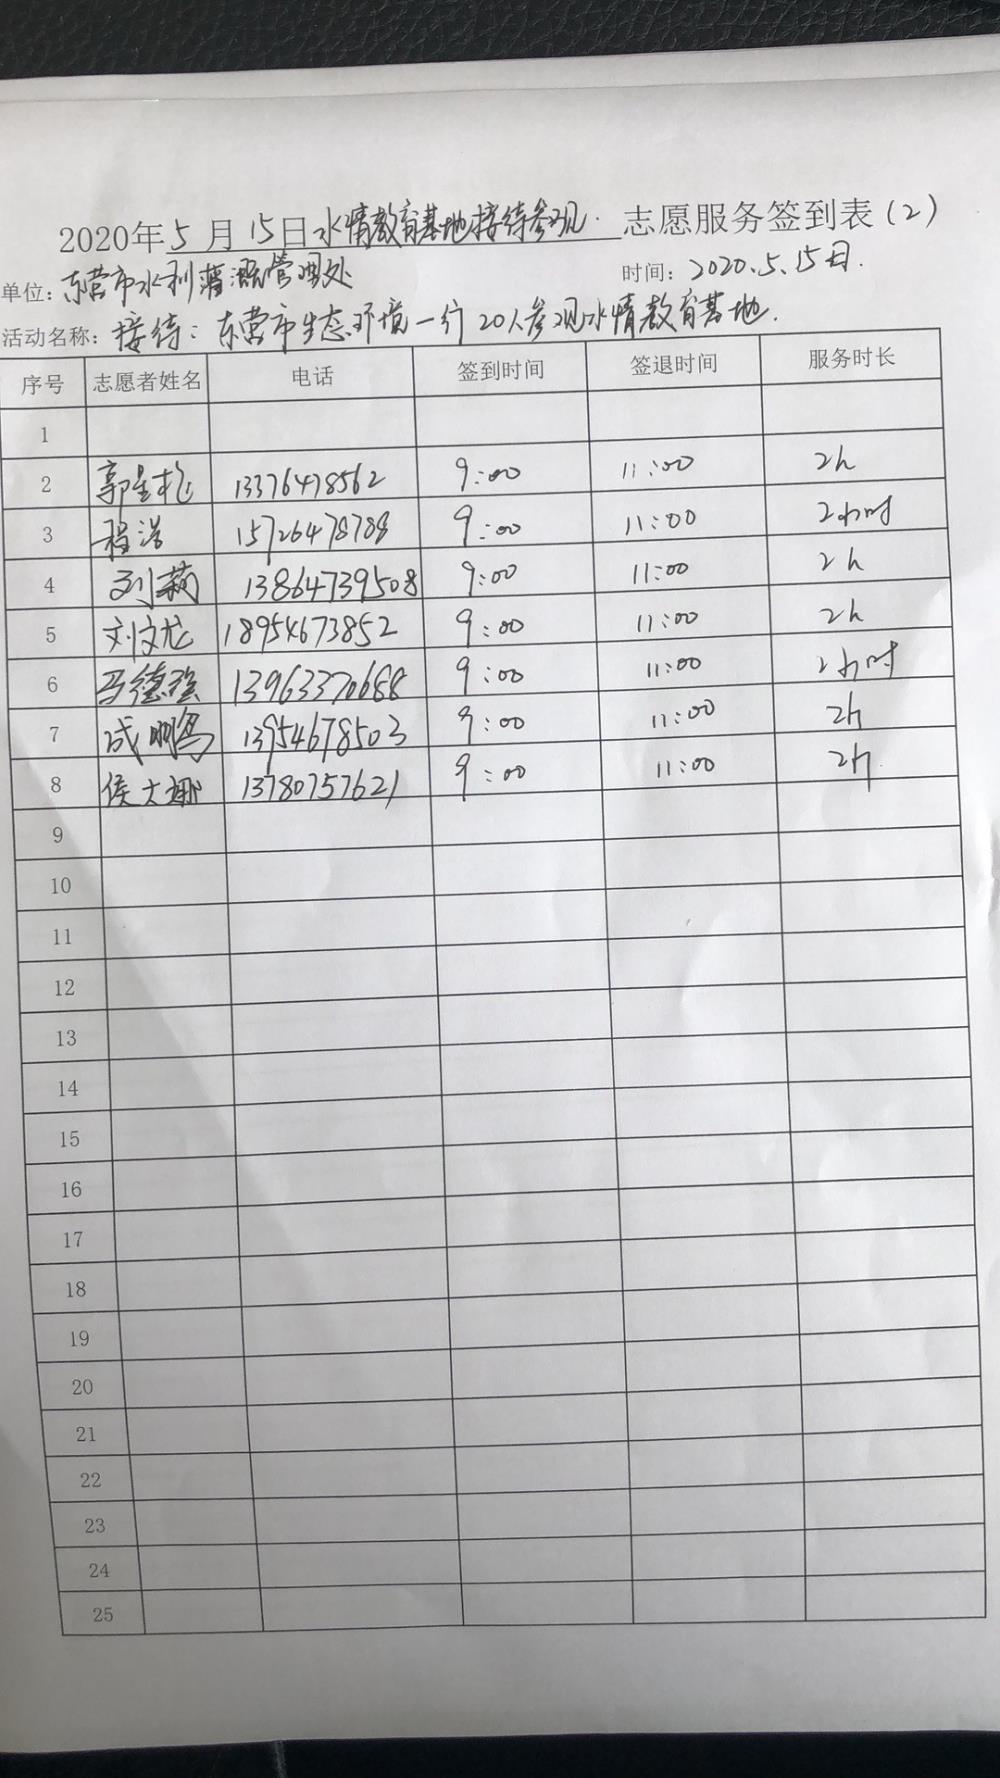 2020年5月15日水情教育基地接待参观 志愿服务签到表(2)
单位:东营市水利灌溉管理处 时间:2020.5.15日.
活动名称:接待:东营市生态环境一行20人参观水情教育基地.
序号 志愿者姓名 电话 签到时间 签退时间 服务时长
1
2 郭 13376478562 9:00 11:00 2h
3 程浩 15726478788 9:00 11:00 2小时
4 刘莉 13864739508 9:00 11:00 2h
5 刘文龙 18954673852 9:00 11:00 2h
6 马德强 13963370688 9:00 11:00 2小时
7 成鹏 13954678503 9:00 11:00 2h
8 侯大娜 13780757621 9:00 11:00 2h
9
10
11
12
13
14
15
16
17
18
19
20
21
22
23
24
25